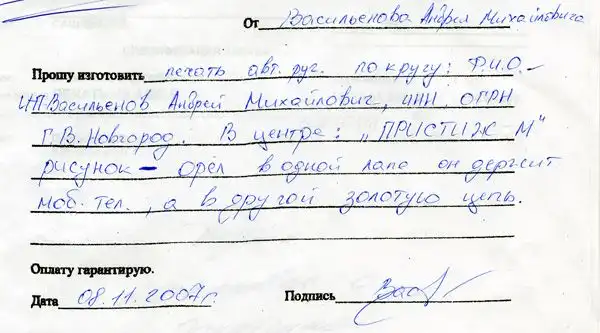 От Васильенова Андрея Михайловича
Прошу изготовить печать авт. руч. по кругу: Ф.И.О. –
ИП Васильенов Андрей Михайлович, ИНН, ОГРН
Г. В. Новгород. В центре: „ПРИСТИЖ М"
рисунок – орёл в одной лапе он держит
моб. тел., а в другой золотую цепь.
Оплату гарантирую.
Дата 08.11.2007г. Подпись